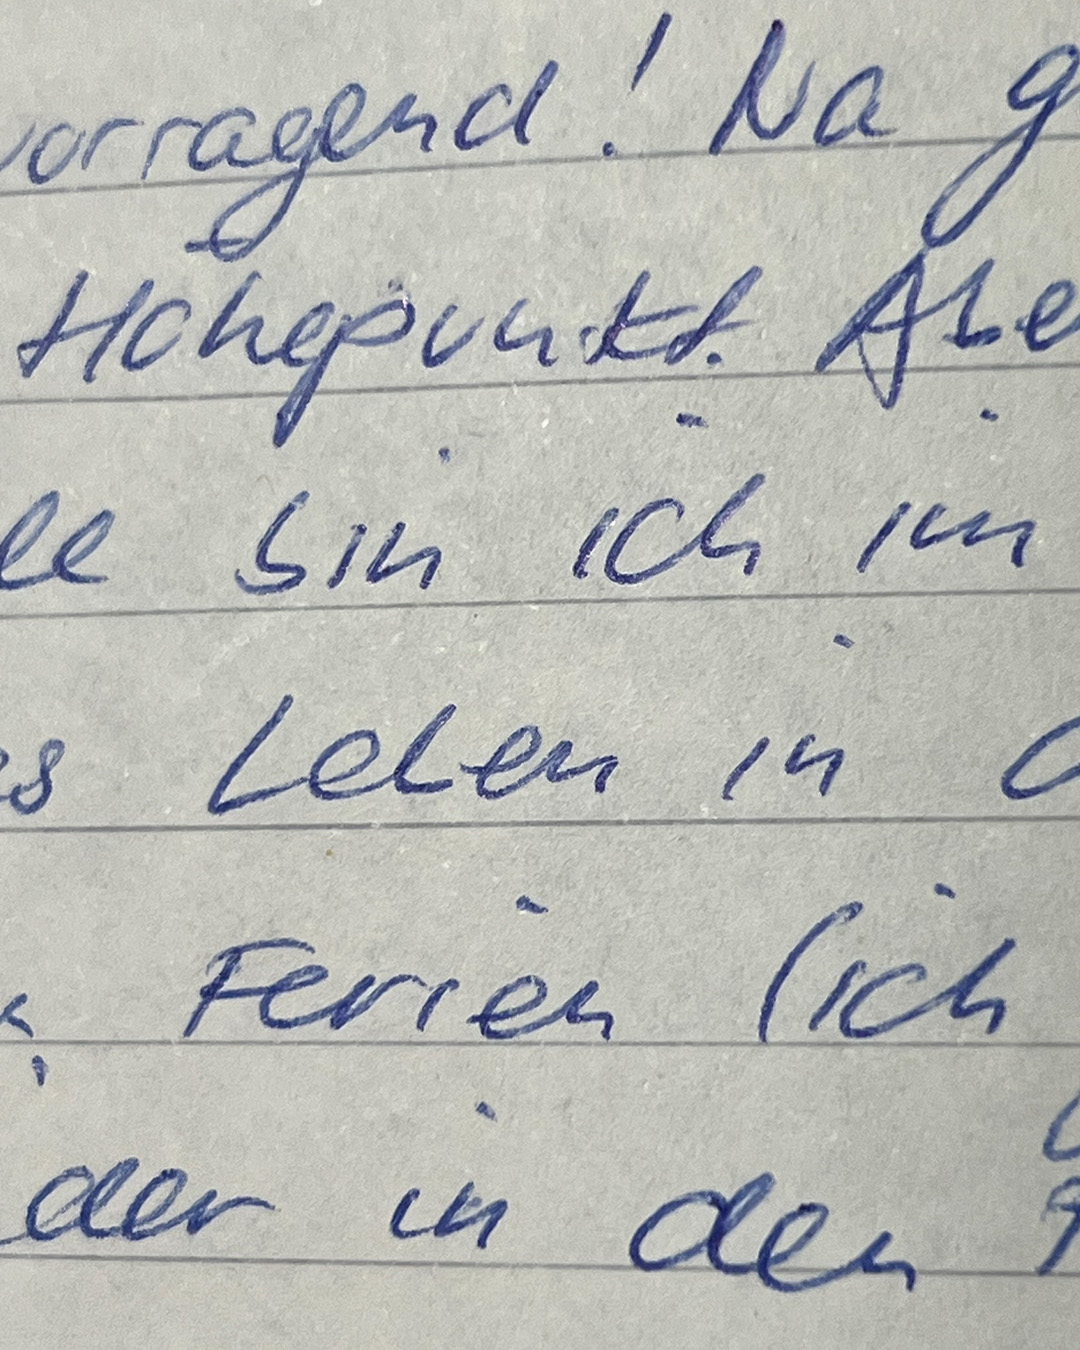 vorragend! Na g
Höhepunkt. Abe
lle bin ich im
es Leben in d
Ferien (ich
der in den